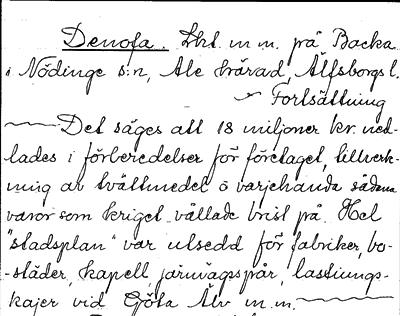 Denofa. Lkt. m.m. på Backa
i Nödinge s:n, Ale härad, Älfsborgs l.
Fortsättning
Det säges att 18 miljoner kr. ned-
lades i förberedelser för företaget, tillverk-
ning av tvättmedel o varjehanda sådana
varor som kriget vållade brist på. Hel
"stadsplan" var utsedd för fabriker, bo-
-städer, kapell, järnvägsspår, lastnings-
kajer vid Göta Älv m.m.